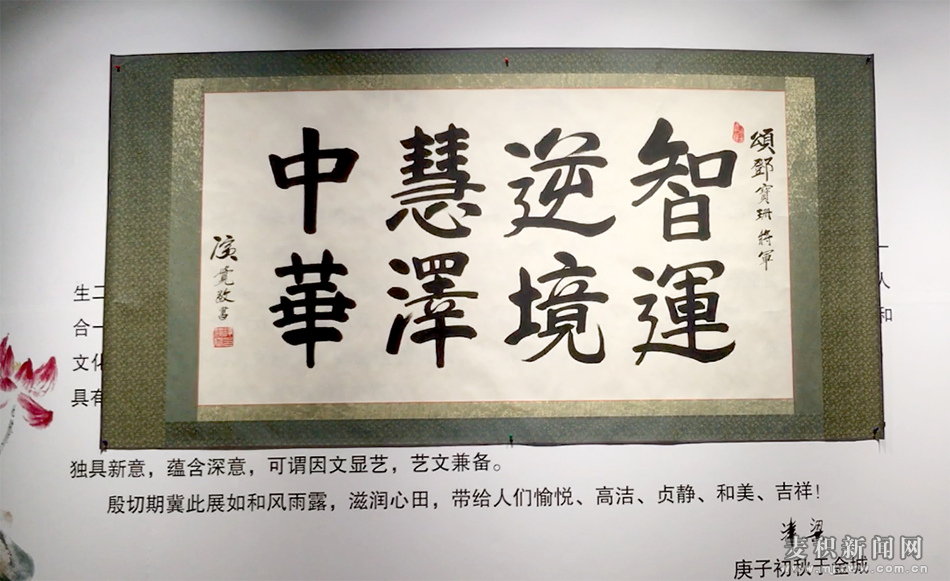 頌鄧寶珊將軍
智運
逆境
慧澤
中華
敬書
生二
合一
文化
具有
人
和
独具新意，蕴含深意，可谓因文显艺，艺文兼备。
殷切期冀此展如和风雨露，滋润心田，带给人们愉悦、高洁、贞静、和美、吉祥！
庚子初秋于金城
麦积新闻网